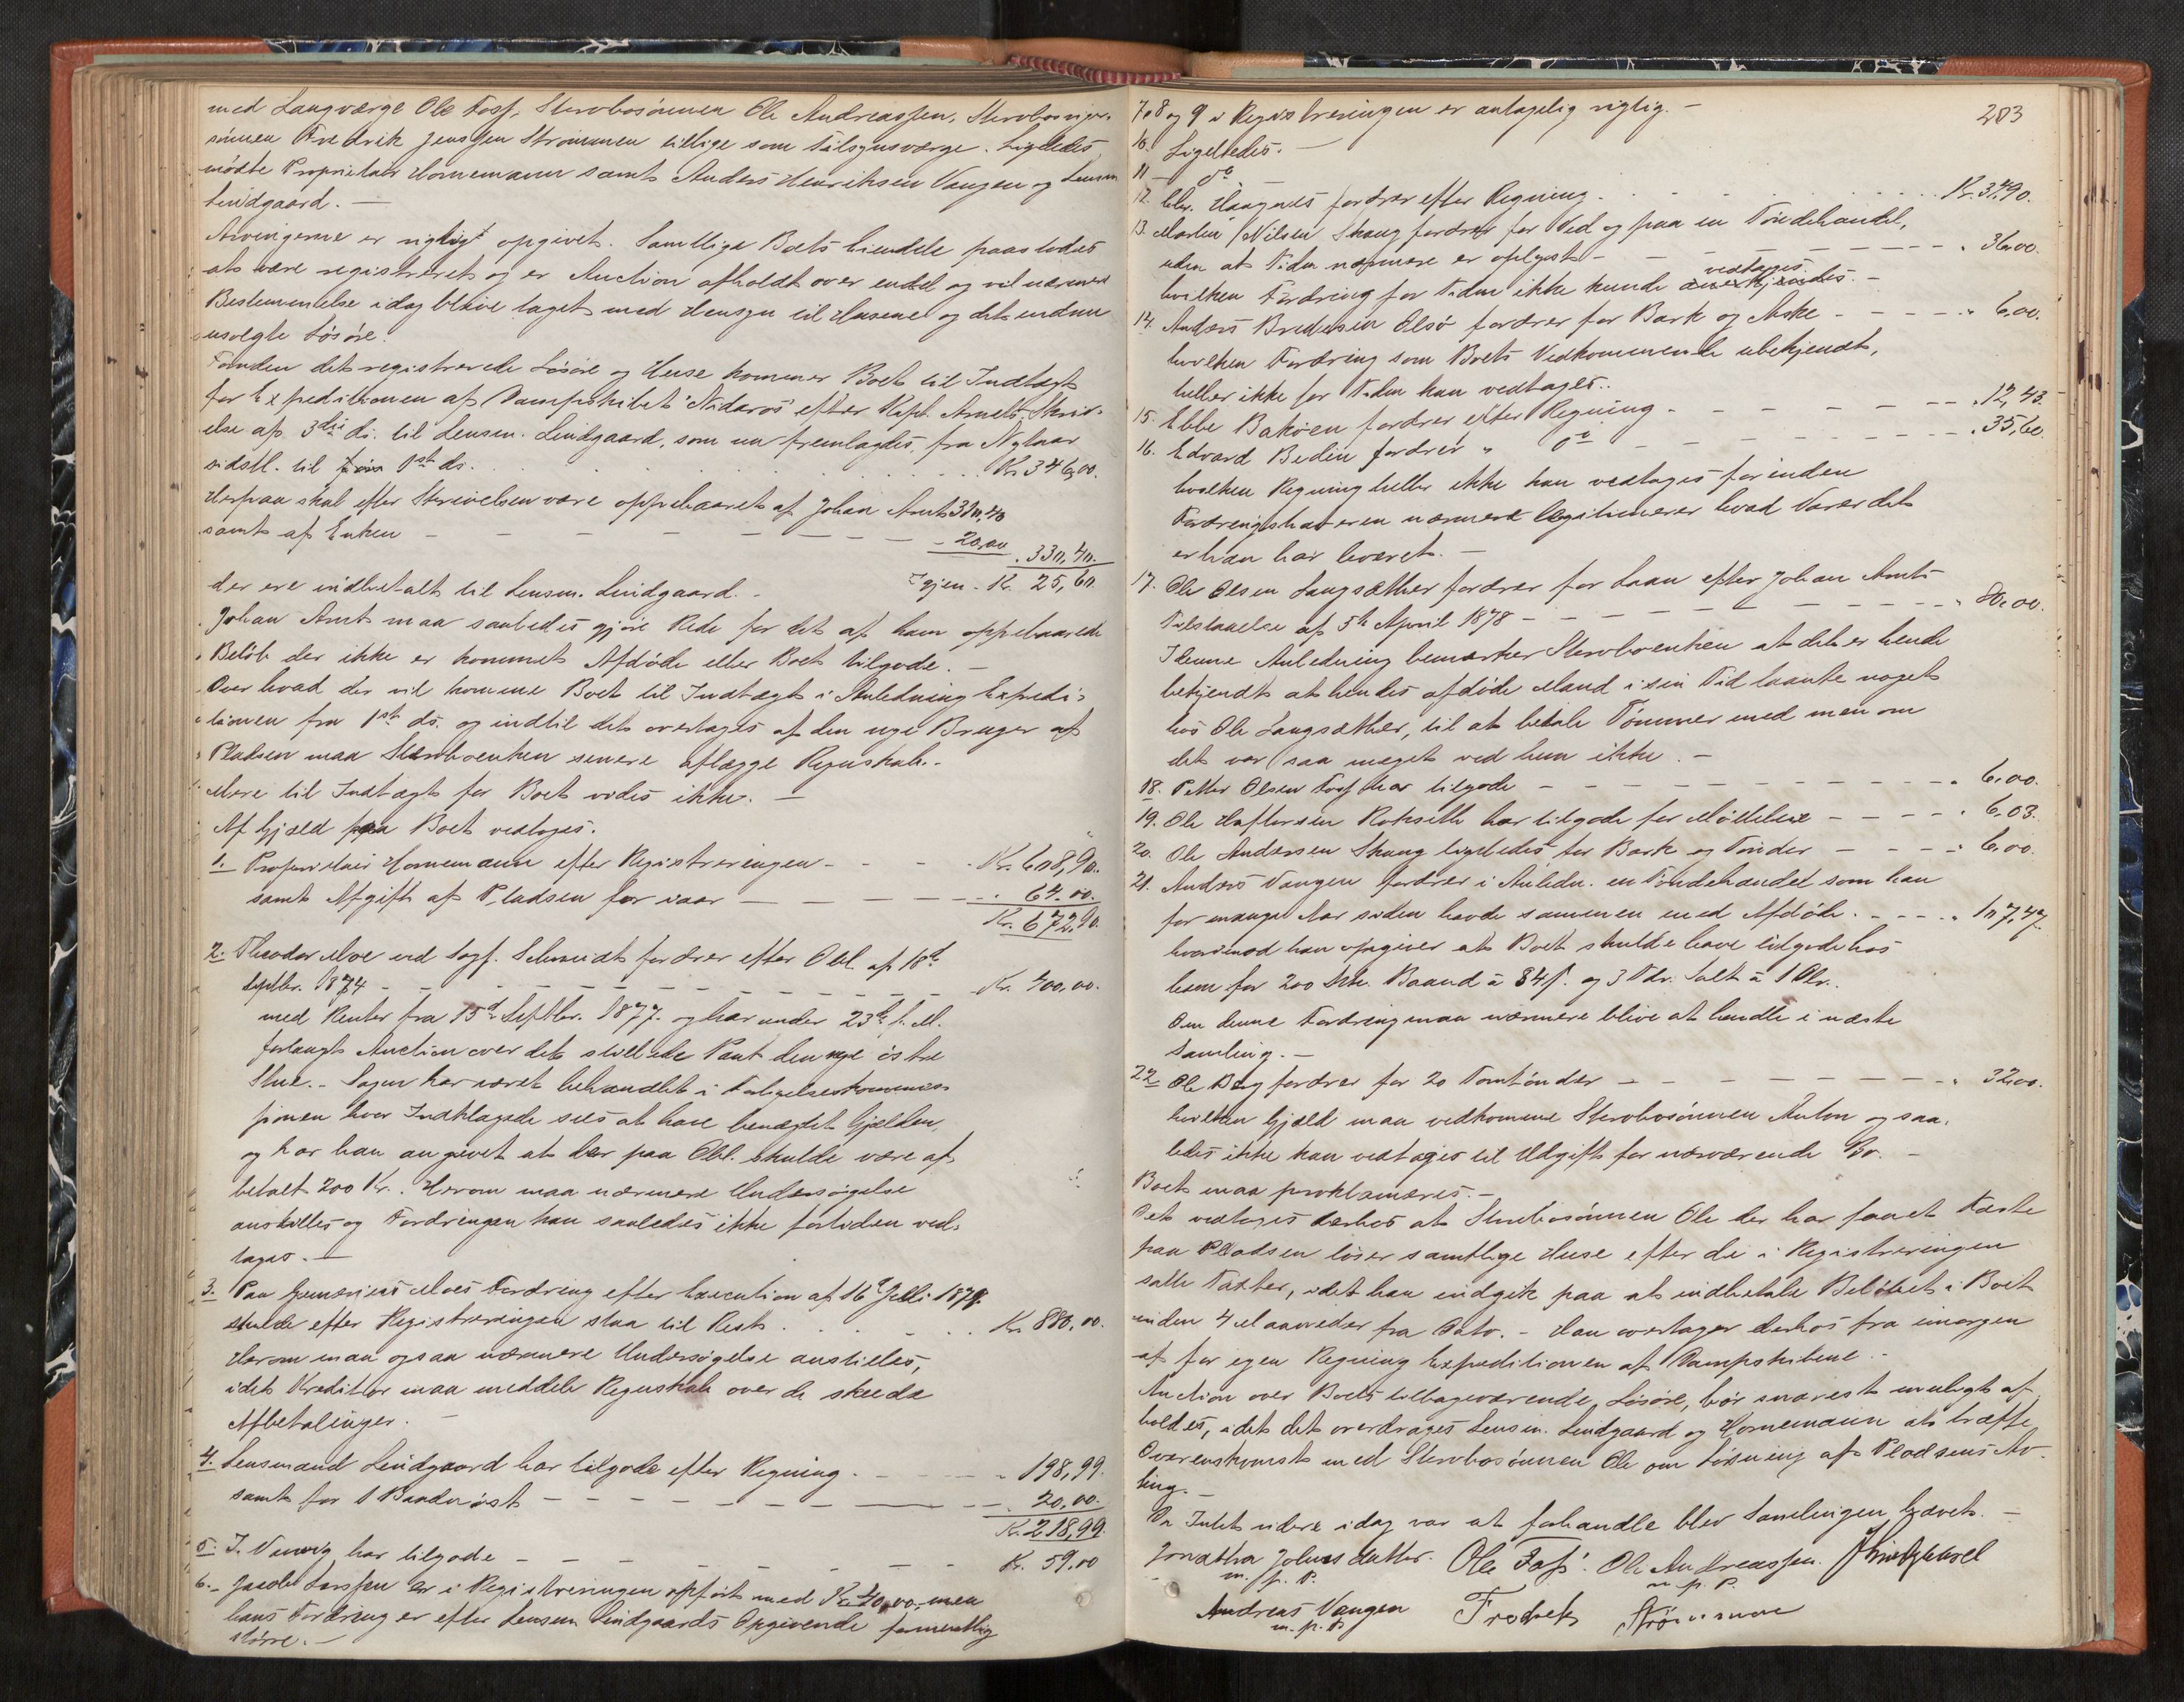 med Laugværge Ole Foss, Stervbosönnen Ole Andreassen, Stervbosviger-
sönnen Fredrik Jenssen Strömmen tillige som Tilsynsværge. Ligeledes
mödte Proprietær Hornemann samt Anders Henriksen Vangen og Lensm.
Lindgaard. —
Arvingerne er rigtigt opgivet. Samtlige Boets Eiendele paastodes
at være registreret og er Auction afholdt over endel og vil nærmere
Bestemmelse idag blive taget med Hensyn til Husene og det endnu
usolgte Lösöre.
Foruden det registrerede Lösöre og Huse kommer Boet til Indtægt
for Expeditionen af Dampskibet "Nidaros" efter Kapt. Arnets Skriv-
else af 3die ds. til Lensm. Lindgaard, som nu fremlagdes, fra Nytaar
sidstl. til 1ste ds. . . . . . . Kr. 346,00.
Herpaa skal efter Skrivelsen være oppebaaret af Johan Arnt 310,40
samt af Enken — — — — — 20,00 . 330,40.
der ere indbetalt til Lensm. Lindgaard. - Igjen - Kr. 25,60.
Johan Arnt maa saaledes gjöre Rede for det af ham oppebaarede
Belöb der ikke er kommet Afdöde eller Boet tilgode. —
Over hvad der vil komme Boet til Indtægt i Anledning Expedi-
tionen fra 1ste ds. og indtil det overtages af den nye Bruger af
Pladsen maa Stervboenken senere aflægge Regnskab. -
Mere til Indtægt for Boet vides ikke. —
Af Gjæld paa Boet vedtoges.
1. Proprietær Hornemann efter Registreringen - - - Kr. 608,90.
samt Afgift af Pladsen for iaar — — — 64.00.
Kr. 672,90.
2. Theodor Moe ved Sagf. Schmidt fordrer efter Obl. af 18d
Septbr. 1874 - - - - - - Kr. 400,00.
med Renter fra 15de Septbr. 1877. og har under 23de f. M.
forlangt Auction over det stillede Pant den nye östre
Stue. - Sagen har været behandlet i Forligelseskommis-
sionen hvor Indklagede sees at have benægtet Gjælden,
og har han angivet at der paa Obl. skulde være af-
betalt 200 Kr. Herom maa nærmere Undersögelse
anstilles og Fordringen kan saaledes ikke fortiden ved-
tages. —
3. Paa Moes Fordring efter Execution af 16d Juli 1879.
skulde efter Registreringen staa til Rest . . . Kr. 880,00.
Herom maa ogsaa nærmere Undersögelse anstilles,
idet Kreditor maa meddele Regnskab over de skeede
Afbetalinger. —
4. Lensmand Lindgaard har tilgode efter Regning - - - 198,99.
samt for 1 — — — 20,00.
Kr. 218,99.
5. J. har tilgode - - - - Kr. 59.00
6. Jacob Larssen er i Registreringen opfört med Kr. 40,00, men
hans Fordring er efter Lensm. Lindgaards Opgivende formentlig
större. -
203
7, 8 og 9 i Registreringen er antagelig rigtig. -
10. Ligeledes. —
11 — do
12. Chr. Haugnes fordrer efter Regning . . . . Kr. 34,90.
13. Martin Nilsen Skaug fordrer for Ved og paa en Töndehandel,
uden at Tiden nærmere er oplyst - - - - " 36,00.
hvilken Fordring for Tiden ikke kunde anerkjendes vedtages. -
14. Anders Bredesen Olsö fordrer for Bark og Aske - - - - " 6,00.
hvilken Fordring som Boets Vedkommende ubekjendt,
heller ikke for Tiden kan vedtages.
15. Ebbe Baköen fordrer efter Regning - - - - " 12,43.
16. Edvard Bedin fordrer " do - - - - " 35,60
hvilken Regning heller ikke kan vedtages forinden
Fordringshaveren nærmere legitimerer hvad Varer det
er han har leveret. -
17. Ole Olsen Langsæther fordrer for Laan efter Johan Arnts
Tilstaaelse af 5te April 1878 - - - - " 80,00.
I denne Anledning bemærker Stervboenken at det er hende
bekjendt at hendes afdöde Mand i sin Tid laante noget
hos Ole Langsæther, til at betale Tömmer med men om
det var saa meget ved hun ikke. -
18. Petter Olsen Foss har tilgode - - - - - " 6,00.
19. Ole Haftorsen Rokseth har tilgode for Mölleleie - - - " 6,03.
20. Ole Anderssen Skaug ligeledes for Bark og Tönder - - - " 6,00.
21. Anders Vangen fordrer i Anledn. en Töndehandel som han
for mange Aar siden havde sammen med Afdöde. - - - " 107,47.
hvorimod han opgiver at Boet skulde have tilgode hos
ham for 200 Stk. Baand à 34 ſ. og 3 Tdr. Salt à 1 Dlr..
Om denne Fordring maa nærmere blive at handle i næste
Samling. -
22. Ole Berg fordrer for 20 Tomtönder - - - - - " 32,00.
hvilken Gjæld maa vedkomme Stervbosönnen Anton og saa-
ledes ikke kan vedtages til Udgift for nærværende Bo. -
Boet maa proklameres. -
Det vedtoges derhos at Stervbosönnen Ole der har faaet Fæste
paa Pladsen löser samtlige Huse efter de i Registreringen
satte Taxter, idet han indgik paa at indbetale Belöbet i Boet
inden 4 Maaneder fra Dato. - Han overtager derhos fra imorgen
af for egen Regning Expeditionen af Dampskibene. -
Auction over Boets tilbageværende Lösöre, bör snarest muligt af-
holdes, idet det overdrages Lensm. Lindgaard og Hornemann at træffe
Overenskomst med Stervbosönnen Ole om Lösning af Pladsens Av-
ling. -
Da Intet videre idag var at forhandle blev Samlingen hævet. -
Jonetha Johns datter. Ole Foss. Ole Andreassen. J Lindgaard
m. p. P. m. p. P.
Andreas Vangen Fredrek Strömmen
m. p. P.